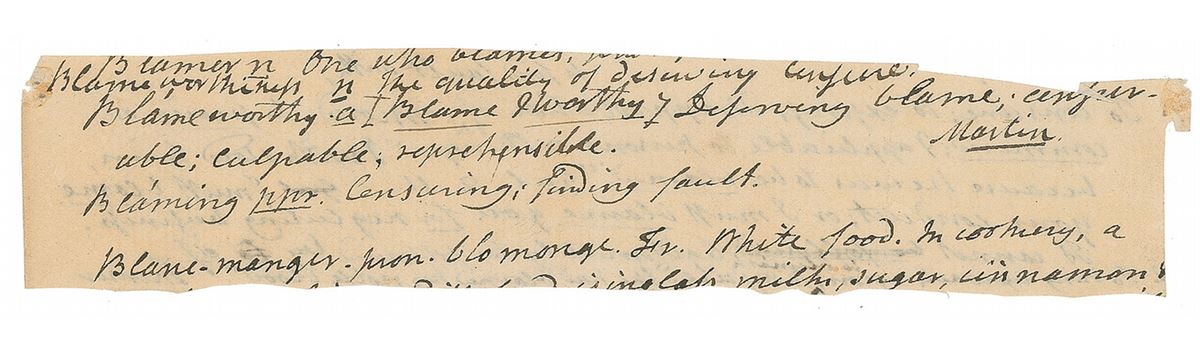 Blamer n One who blames,
Blameworthiness n The quality of deserving censure.
Blameworthy. a [Blame & worthy] Deserving blame; censur-
able; culpable; reprehensible. Martin.
Blaming ppr. Censuring; finding fault.
Blanc-manger. pron. blomonge. Fr. White food. In cookery, a
isinglass, milk, sugar, cinnamon,